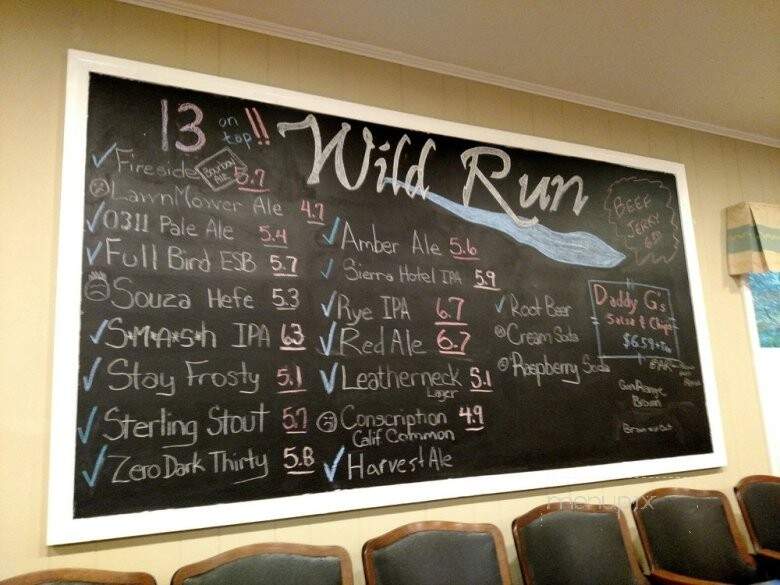 13 on top!!
Wild Run
Fireside Bourbon Ale 5.7
LawnMower Ale 4.7
0311 Pale Ale 5.4
Full Bird ESB 5.7
Souza Hefe 5.3
S*M*A*S*H IPA 6.3
Stay Frosty 5.1
Sterling Stout 5.7
Zero Dark Thirty 5.8
Amber Ale 5.6
Sierra Hotel IPA 5.9
Rye IPA 6.7
Red Ale 6.7
Leatherneck Lager 5.1
Conscription 4.9
Calif Common
Harvest Ale
Root Beer
Cream Soda
Raspberry Soda
BEEF
JERKY
Daddy G's
Salsa & Chips
$6.59+Tax
Brown
menupix